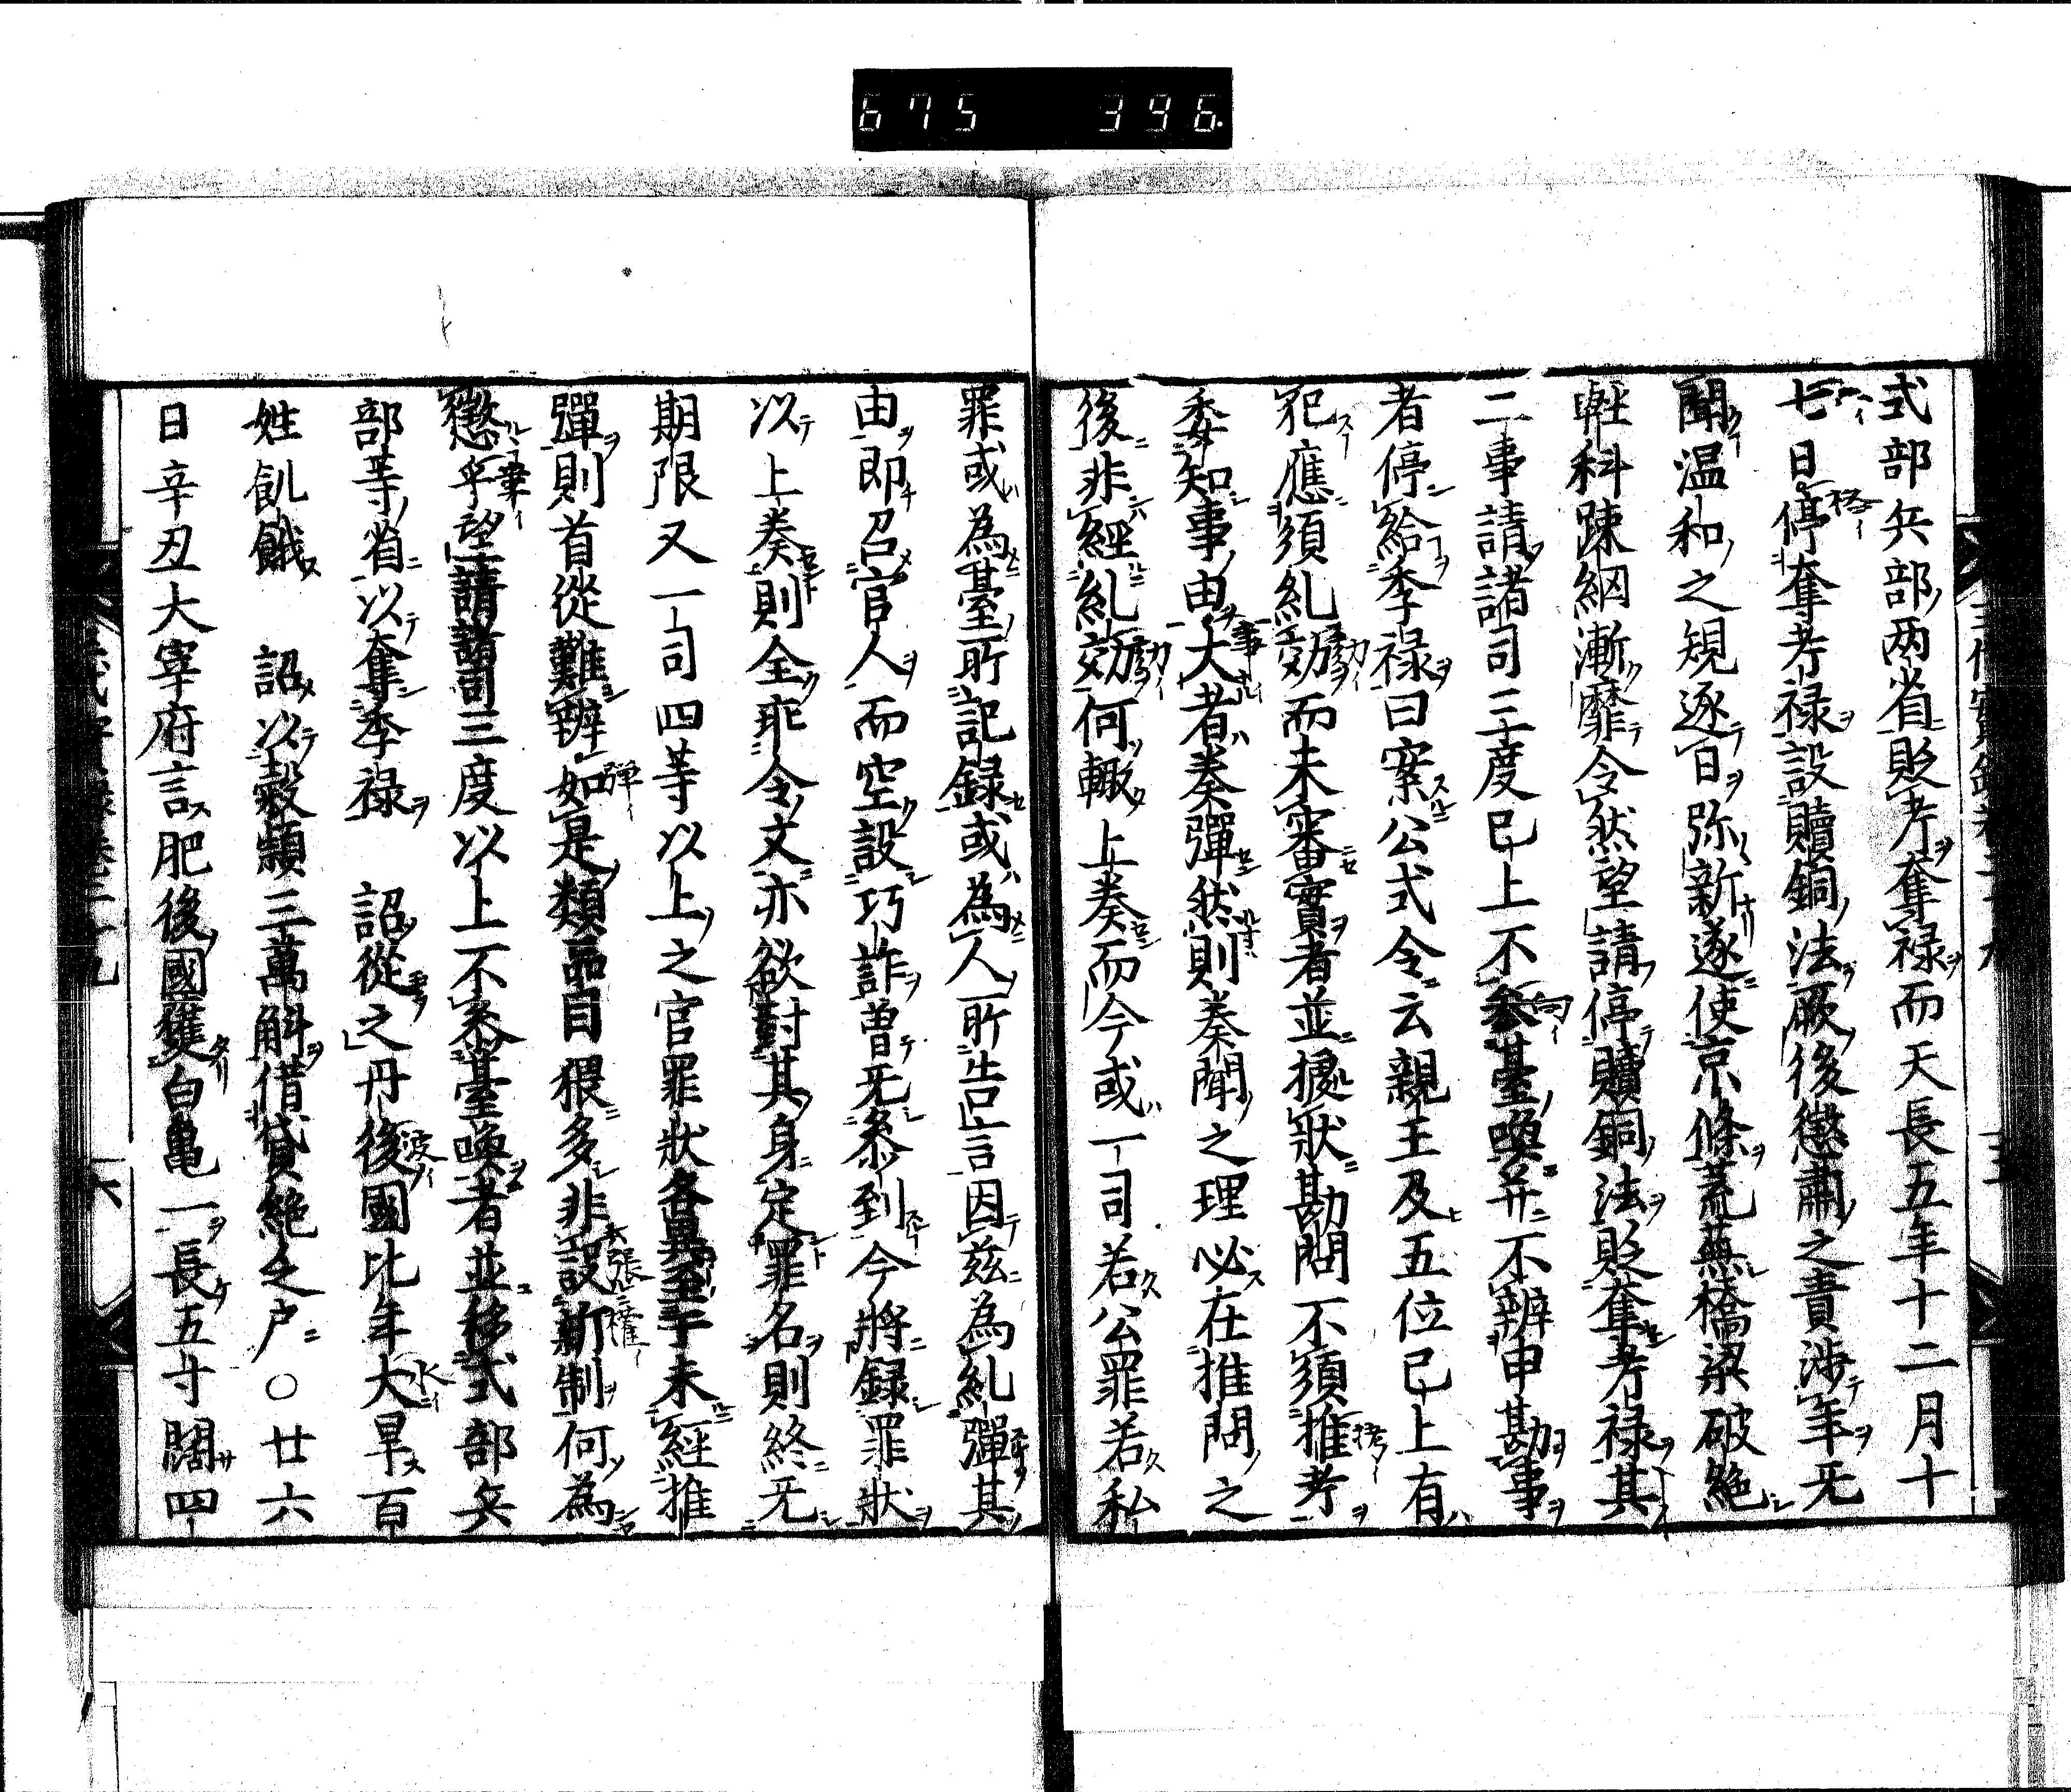 675 396.
式部兵部両省貶考奪禄而天長五年十二月十
七日停奪考禄設贖銅法厥後懲粛之責渉年无
聞温和之規逐日弥新遂使京條荒蕪橋梁破絶
軽科疎網漸靡令然望請停贖銅法貶奪考禄其
二事請諸司三度已上不参臺喚并不辨申勘事
者停給季禄曰案公式令云親王及五位已上有
犯應須糺劾而未審實者並據状勘問不須推考
委知事由大者奏彈然則奏聞之理必在推問之
後非経糺劾何輙上奏而今或一司若公罪若私
罪或為臺所記録或為人所告言因茲為糺彈其
由即召官人而空設巧詐曽无参到今將録罪状
以上奏則全乖令文亦欲對其身定罪名則終无
期限又一司四等以上之官罪状各異至于未経推
彈則首従難辨如是類品目猥多非設新制何為
懲乎望請諸司三度以上不参臺喚者並移式部兵
部等省以奪季禄　詔従之丹後國比年大旱百
姓飢餓　詔以穀穎三萬斛借貸絶乏戸〇廿六
日辛丑大宰府言肥後國獲白亀一長五寸闊四